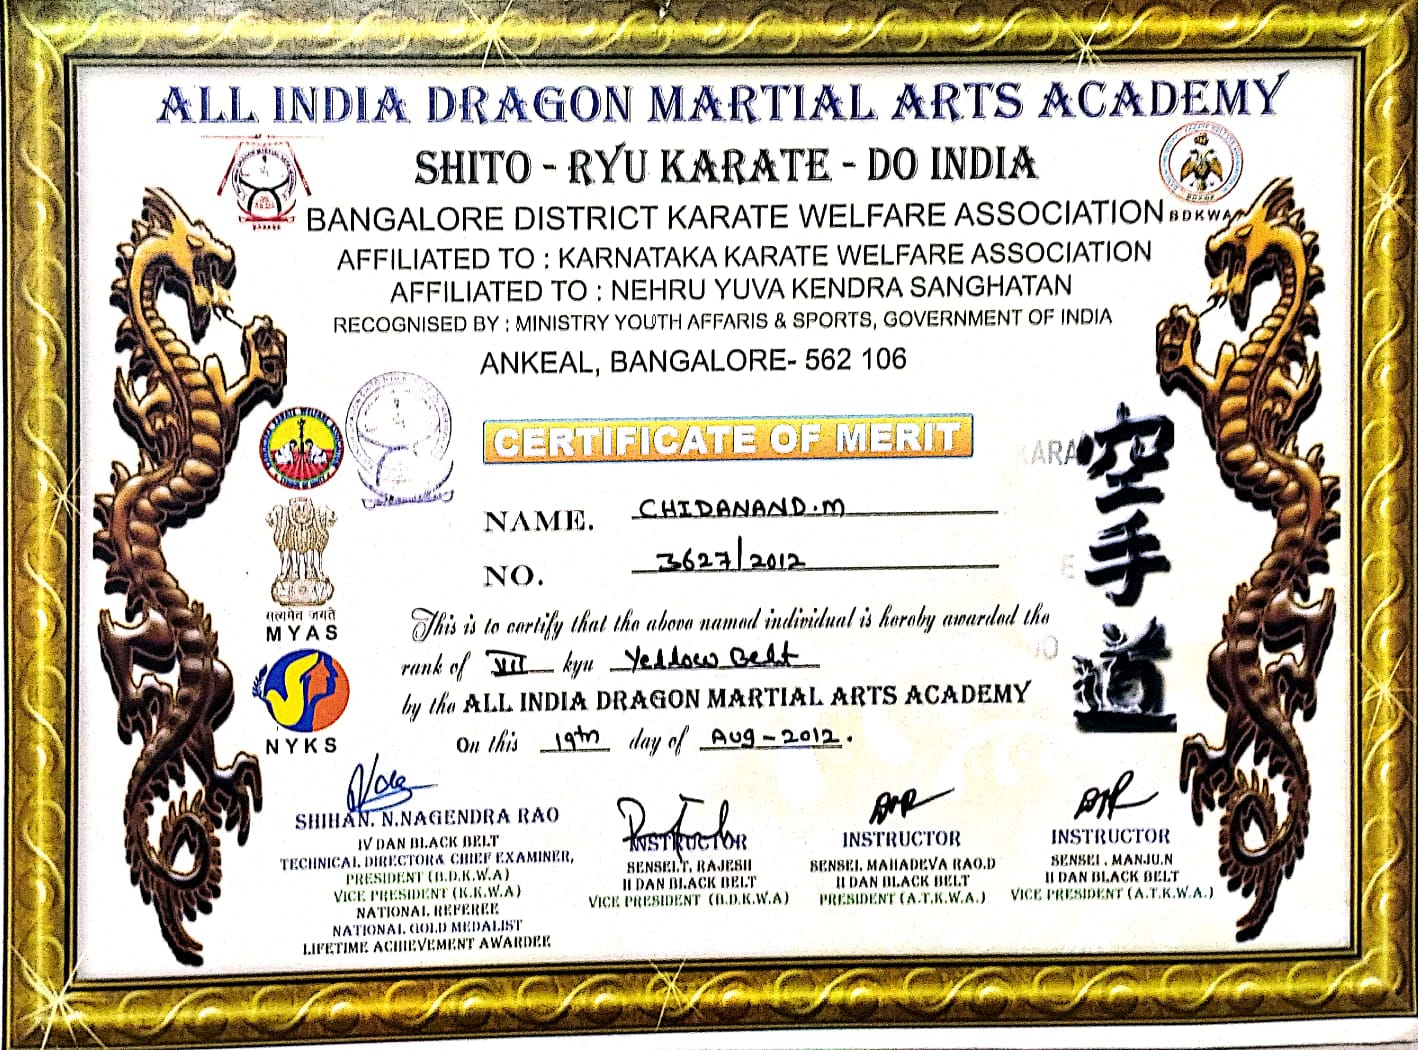 ALL INDIA DRAGON MARTIAL ARTS ACADEMY
SHITO - RYU KARATE - DO INDIA
BDKWA
BANGALORE DISTRICT KARATE WELFARE ASSOCIATION
AFFILIATED TO : KARNATAKA KARATE WELFARE ASSOCIATION
AFFILIATED TO : NEHRU YUVA KENDRA SANGHATAN
RECOGNISED BY : MINISTRY YOUTH AFFARIS & SPORTS, GOVERNMENT OF INDIA
ANKEAL, BANGALORE- 562 106
CERTIFICATE OF MERIT
KARA
空手道
NAME. CHIDANAND.M
NO. 3627/2012
सत्यमेव जयते
MYAS
NYKS
This is to certify that the above named individual is hereby awarded the
rank of VII kyu Yellow Belt
by the ALL INDIA DRAGON MARTIAL ARTS ACADEMY
On this 19th day of Aug-2012.
SHIHAN. N.NAGENDRA RAO
IV DAN BLACK BELT
TECHNICAL DIRECTOR& CHIEF EXAMINER,
PRESIDENT (B.D.K.W.A)
VICE PRESIDENT (K.K.W.A)
NATIONAL REFEREE
NATIONAL GOLD MEDALIST
LIFETIME ACHIEVEMENT AWARDEE
INSTRUCTOR
SENSEI.T. RAJESH
II DAN BLACK BELT
VICE PRESIDENT (B.D.K.W.A)
INSTRUCTOR
SENSEI. MAHADEVA RAO.D
II DAN BLACK BELT
PRESIDENT (A.T.K.W.A.)
INSTRUCTOR
SENSEI. MANJU.N
II DAN BLACK BELT
VICE PRESIDENT (A.T.K.W.A.)